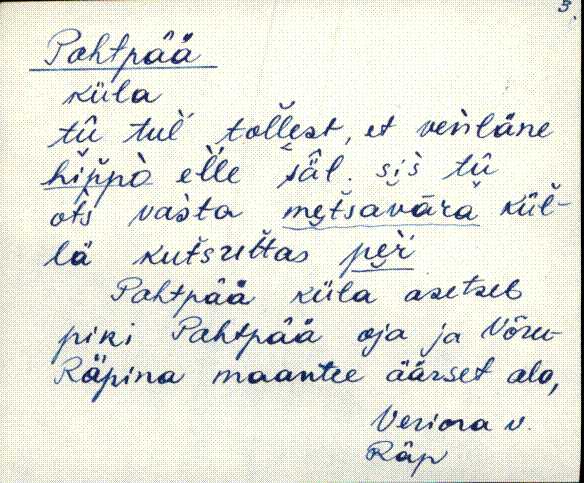 3.
Pahtpää̂
küla
tû tuĺ tol̆l̆est, et veńläne
hip̆p̆o elĺe säl. siś tû
ots vasta metsavära kül-
lä kutsuttas peŕ
Pahtpää̂ küla asetseb
piki Pahtpää̂ oja ja Võru-
Räpina maantee äärset ala,
Veriora v.
Räp